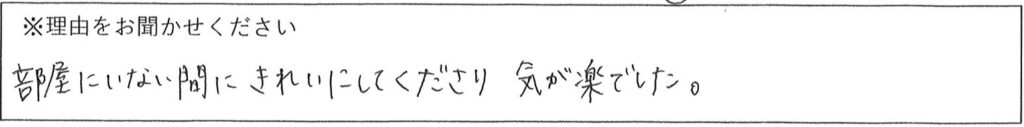 ※理由をお聞かせください
部屋にいない間に きれいにしてくださり 気が楽でした。